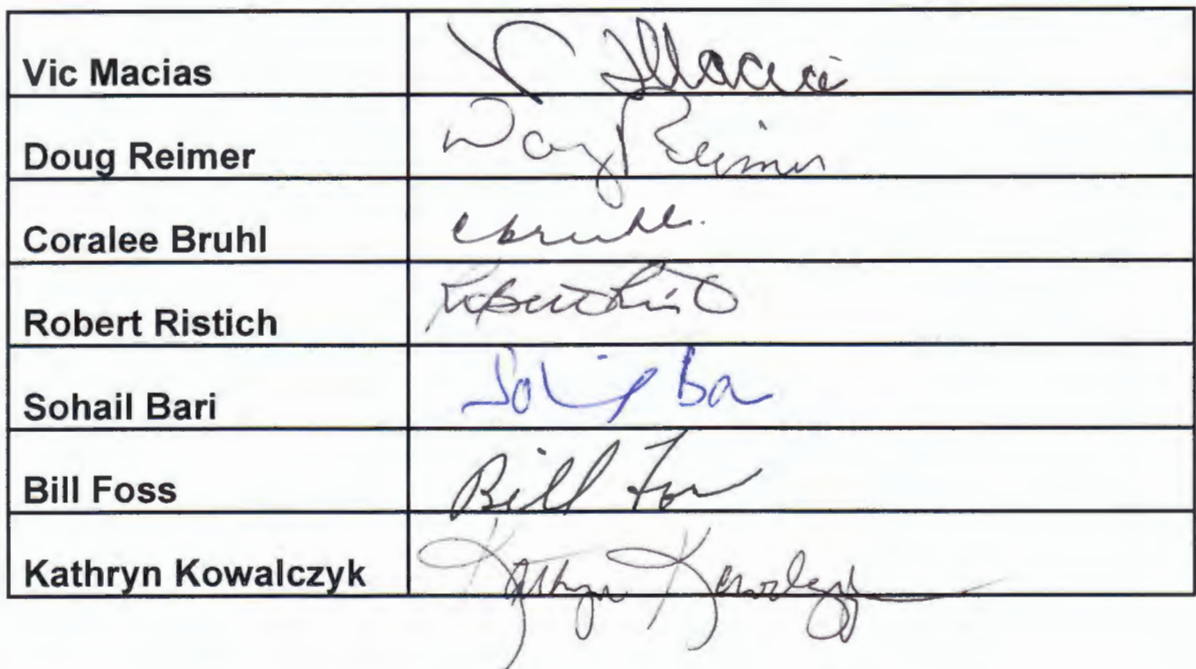 Vic Macias V Macias
Doug Reimer Doug Reimer
Coralee Bruhl cbruhl.
Robert Ristich Robert Rist
Sohail Bari Sohail Ba
Bill Foss Bill Foss
Kathryn Kowalczyk Kathryn Kowalczyk